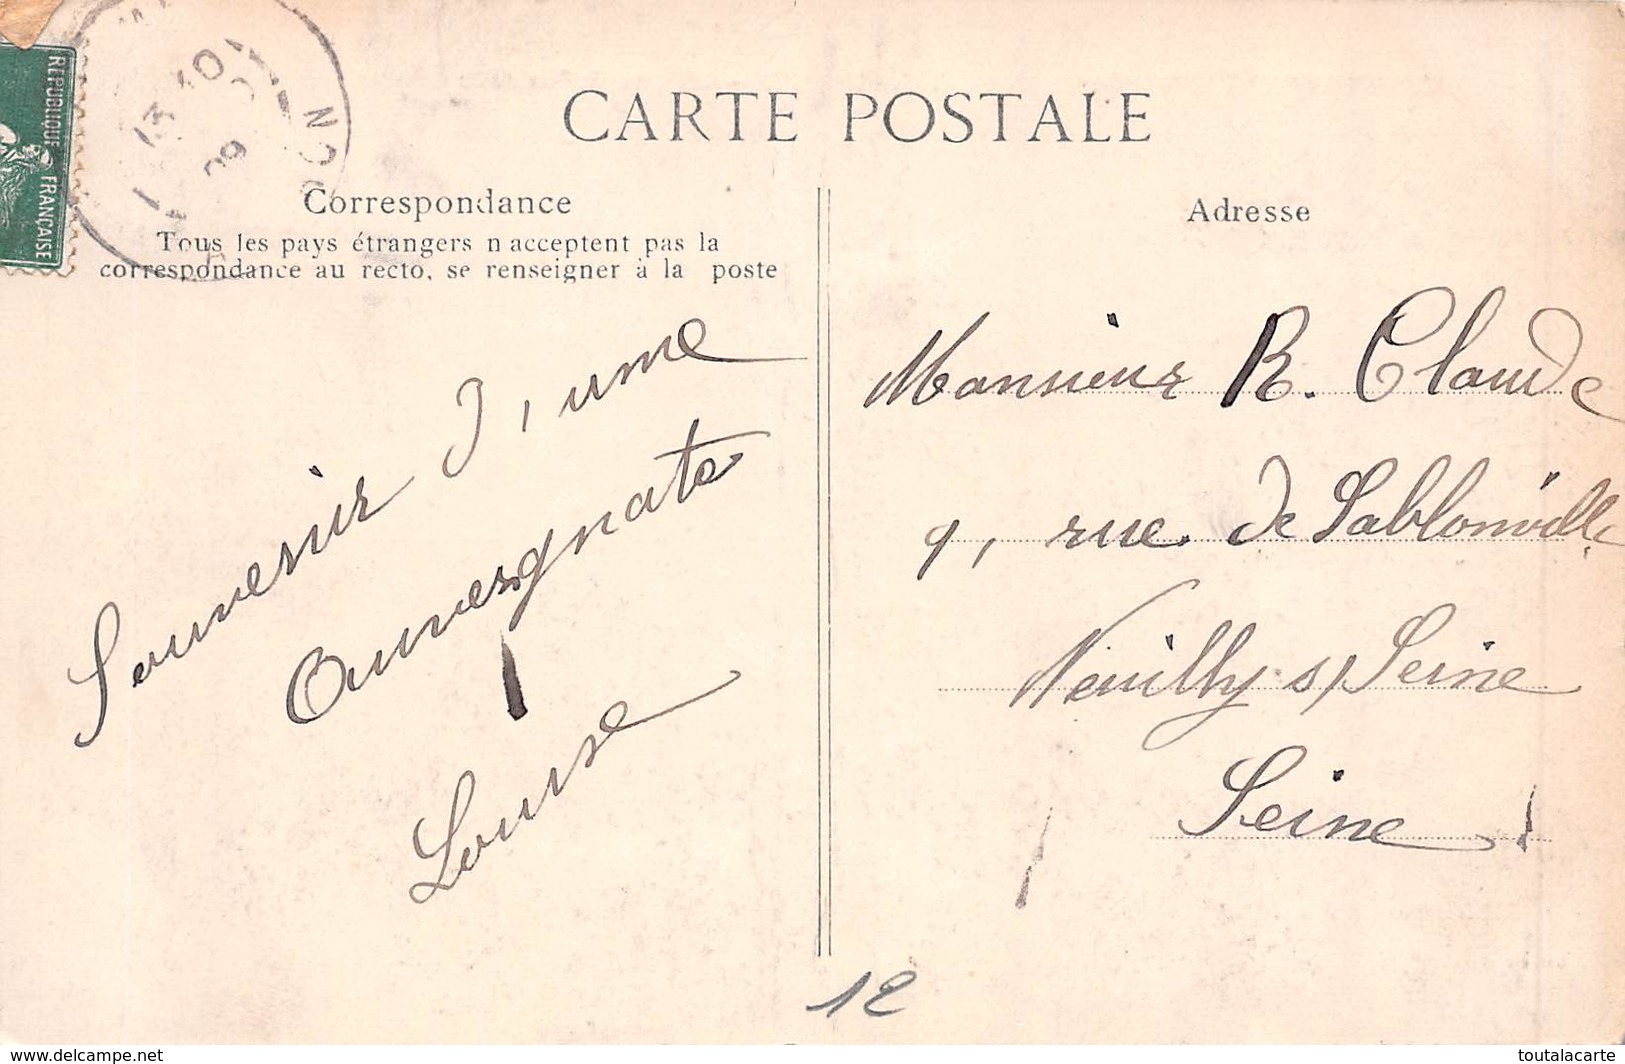 REPUBLIQUE FRANÇAISE
13 10
09
CARTE POSTALE
Correspondance
Tous les pays étrangers n acceptent pas la
correspondance au recto, se renseigner à la poste
Souvenir d, une
Auvergnate
Louise
Adresse
Monsieur R. Claude
9, rue de Sablonville
Neuilly s/Seine
Seine
12
www.delcampe.net
toutalacarte